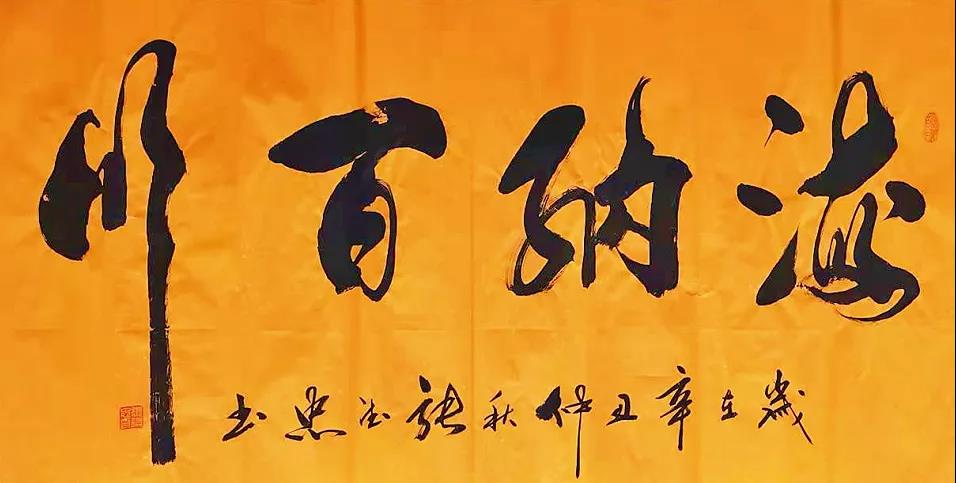 海纳百川
岁在辛丑仲秋张德忠书